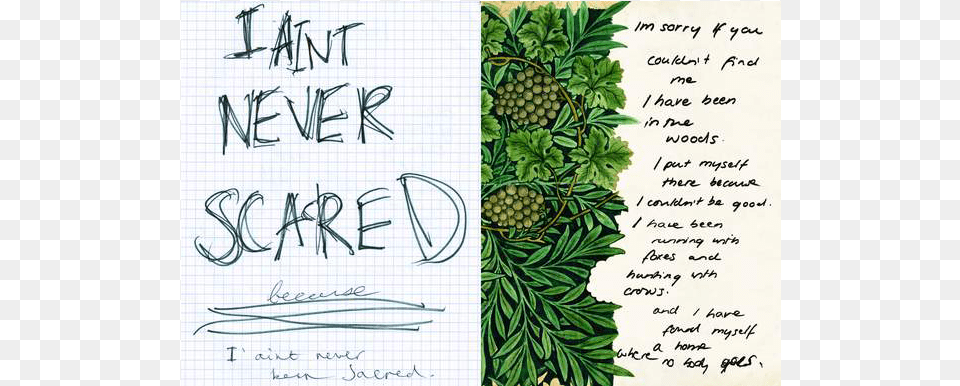 I AINT
NEVER
SCARED
because
I'aint never
been Sacred.
Im sorry If you
couldn't find
me
I have been
in the
woods.
I put myself
there because
I couldn't be good.
I have been
running with
foxes and
hunting with
crows.
and I have
found myself
a home
where no body goes.